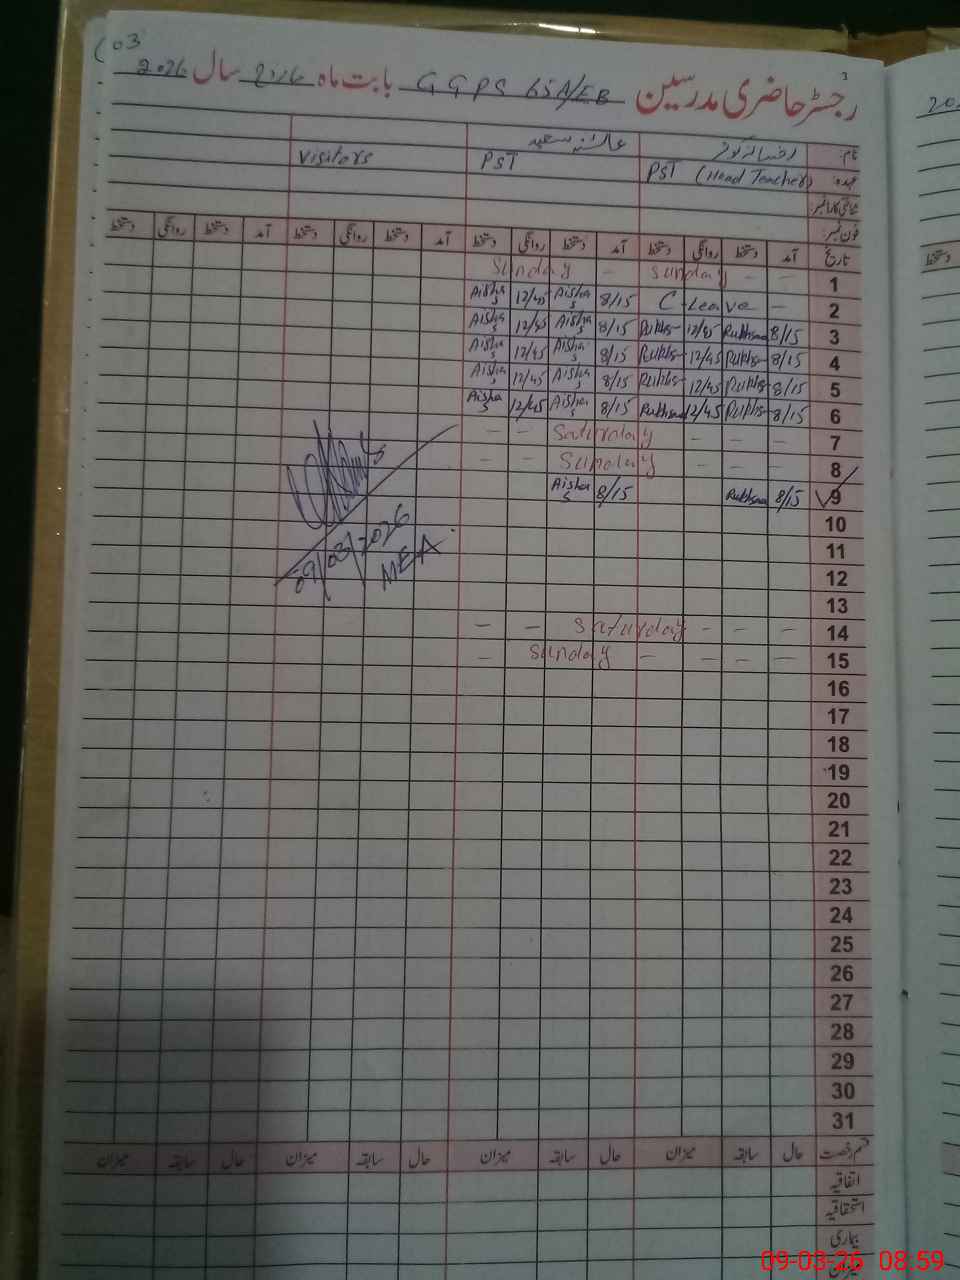 03
رجسٹر حاضری مدرسین GGPS 65A/EB بابت ماہ مارچ سال 2026
نام: رخسانہ کوثر عائشہ سعید
عہدہ: PST (Head Teacher) PST Visitors
فون نمبر:
تاریخ آمد دستخط روانگی دستخط آمد دستخط روانگی دستخط آمد دستخط روانگی دستخط آمد دستخط روانگی دستخط
Sunday – Sunday – – 1
Aisha S 12/45 Aisha S 8/15 C-Leave – 2
Aisha S 12/45 Aisha S 8/15 Rukhs 12/45 Rukhsa 8/15 3
Aisha S 12/45 Aisha S 8/15 Rukhs 12/45 Rukhs 8/15 4
Aisha S 12/45 Aisha S 8/15 Rukhs 12/45 Rukhs 8/15 5
Aisha S 12/45 Aisha S 8/15 Rukhsa 12/45 Rukhs 8/15 6
– – Saturday – – – 7
– – Sunday – – – 8
Aisha S 8/15 Rukhsa 8/15 9
09/03/2026
MEA
10
11
12
13
– – Saturday – – – 14
– Sunday – – – – 15
16
17
18
19
20
21
22
23
24
25
26
27
28
29
30
31
قسم رخصت حال سابقہ میزان حال سابقہ میزان حال سابقہ میزان حال سابقہ میزان
اتفاقیہ
استحقاقیہ
بیماری
09-03-26 08.59